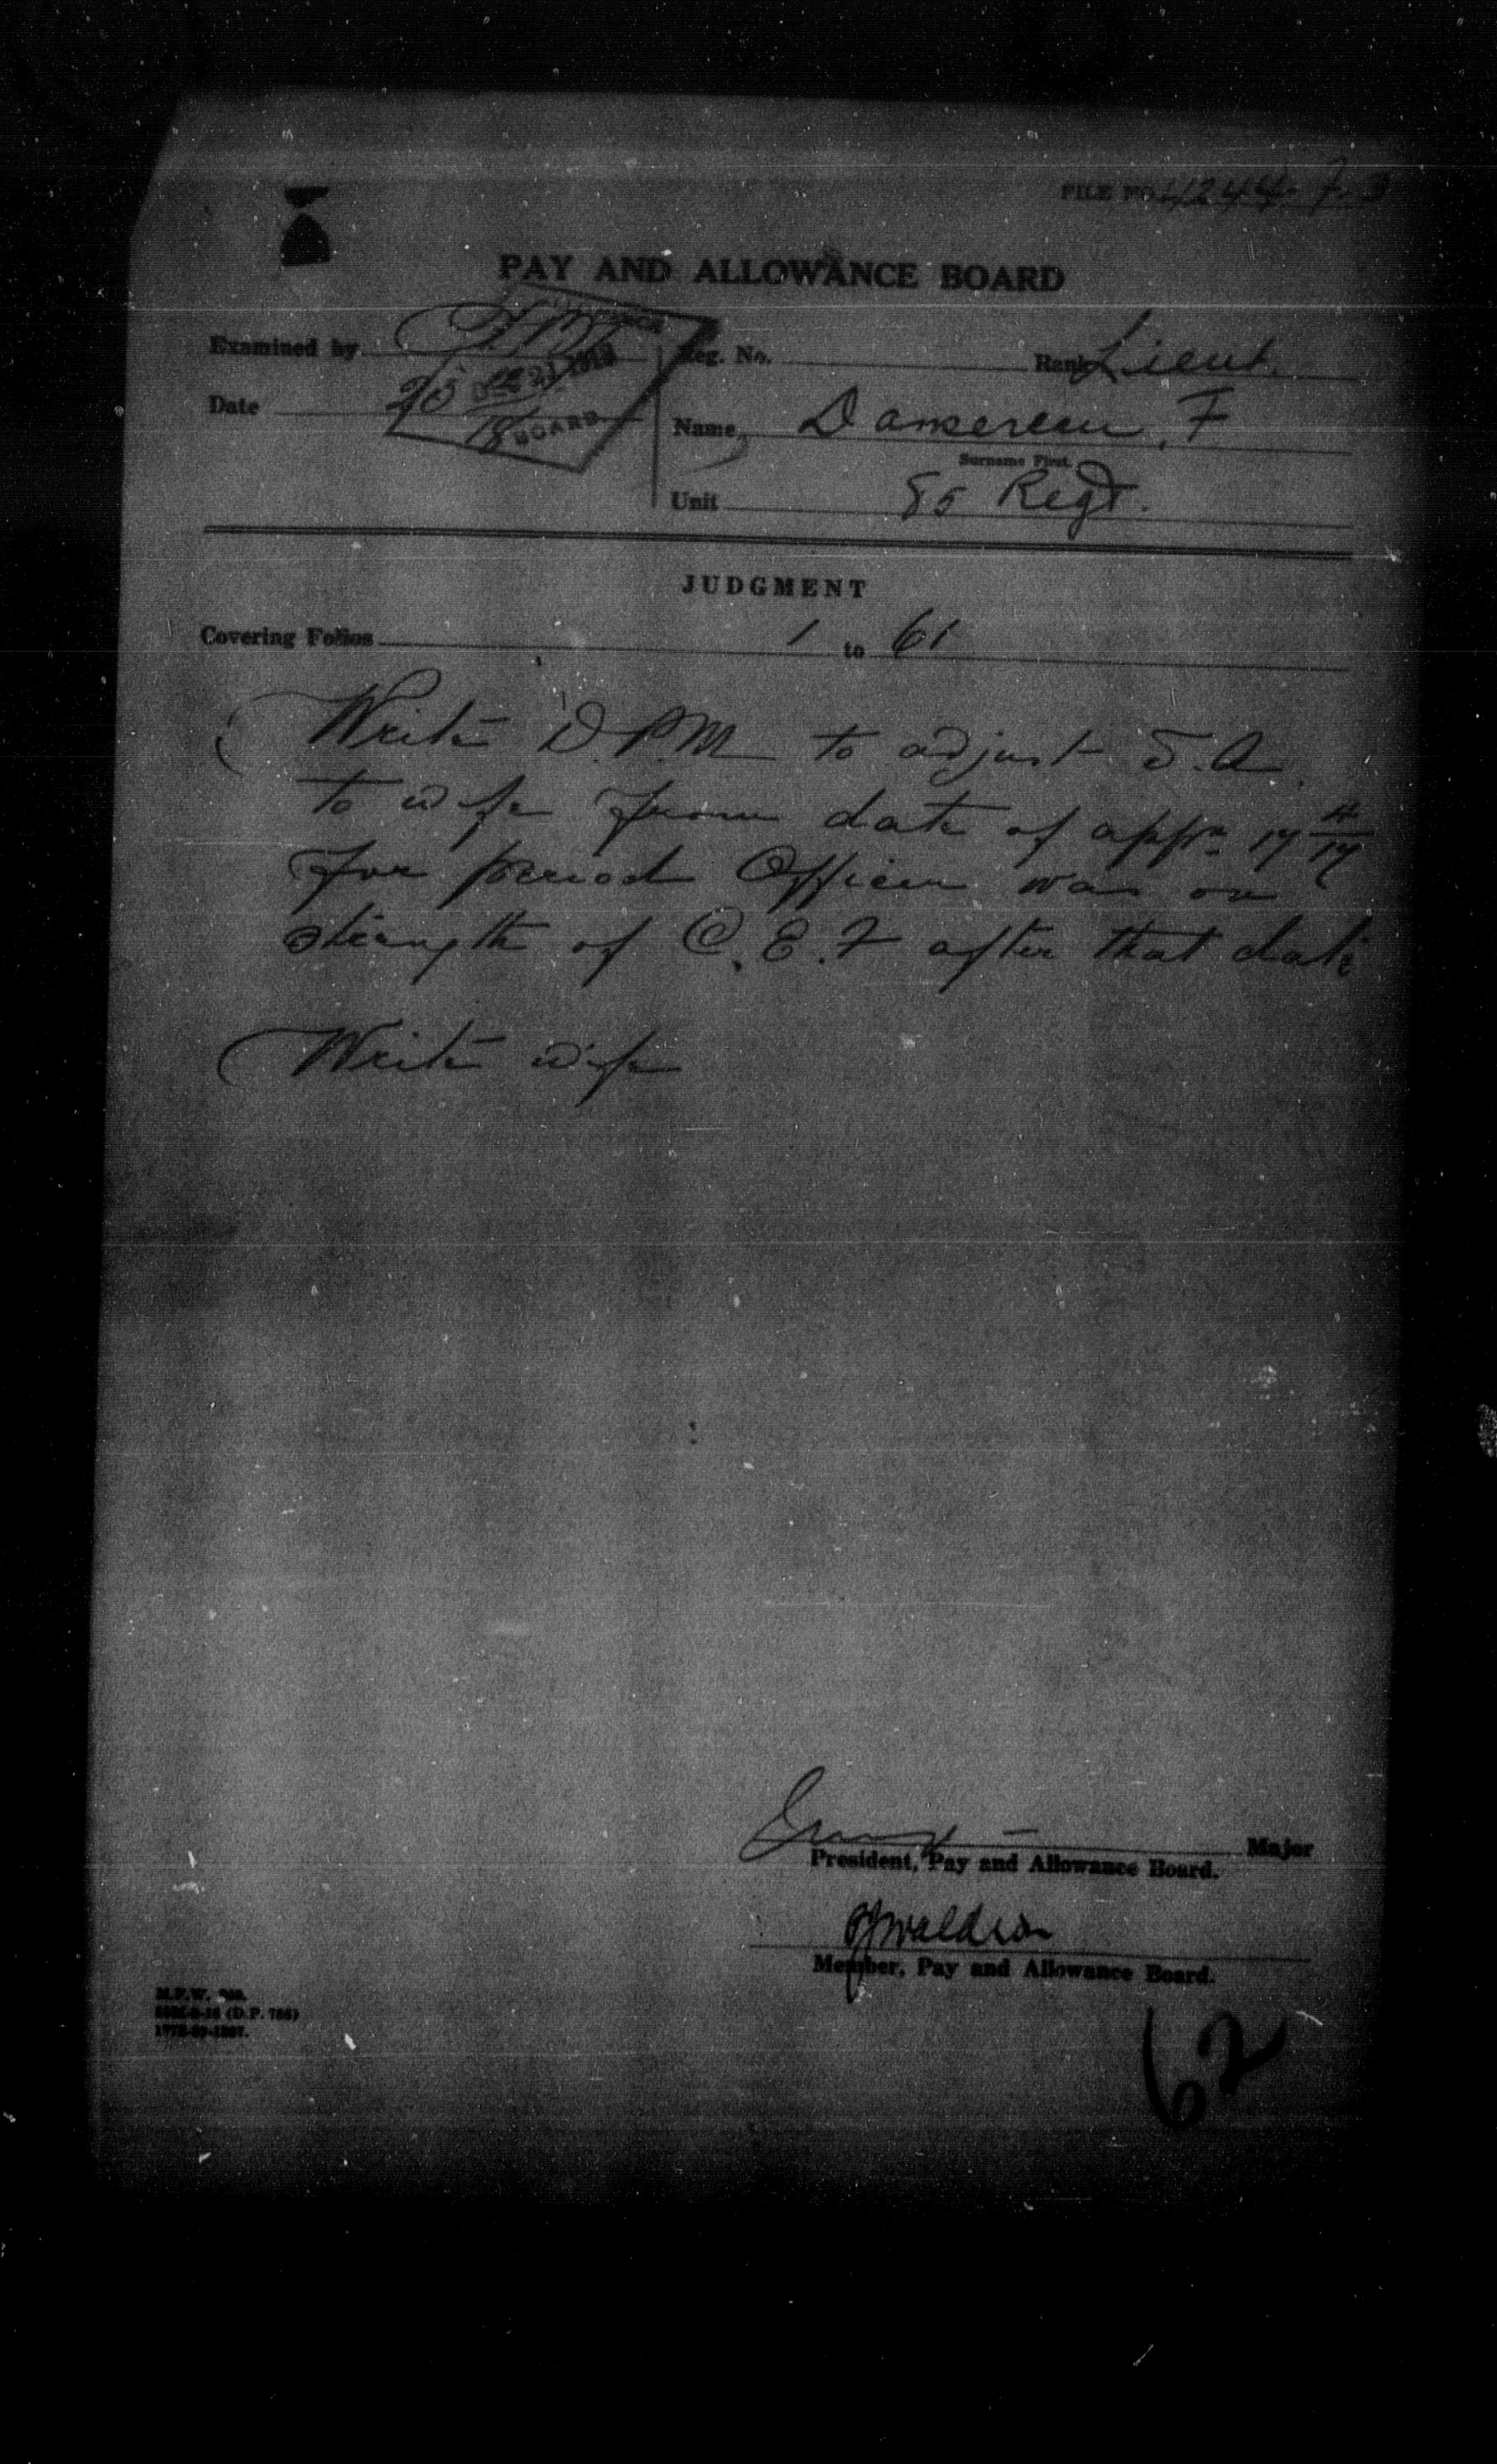 FILE NO. 4244-
PAY AND ALLOWANCE BOARD
Examined by
Reg. No. Rank Lieut.
Date 20 DEC 21
18 BOARD
Name Dansereau, F
Surname First.
Unit 85 Regt.
JUDGMENT
Covering Folios 1 to 61
Write D.P.M to adjust S.A.
to wife from date of appn 17
for period Officer was on
strength of C.E.F after that date
Write wife
Major
President, Pay and Allowance Board.
Member, Pay and Allowance Board.
M.F.W.
(D.P. 786)
62